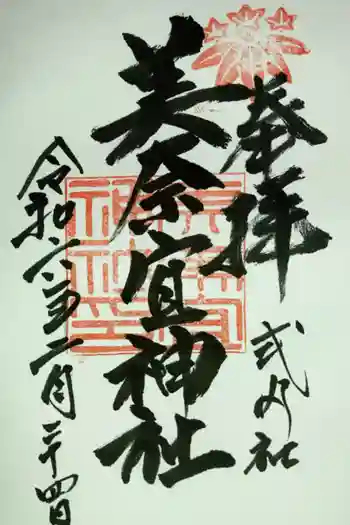 奉拝
式内社
美奈宜神社
令和六年二月二十四日